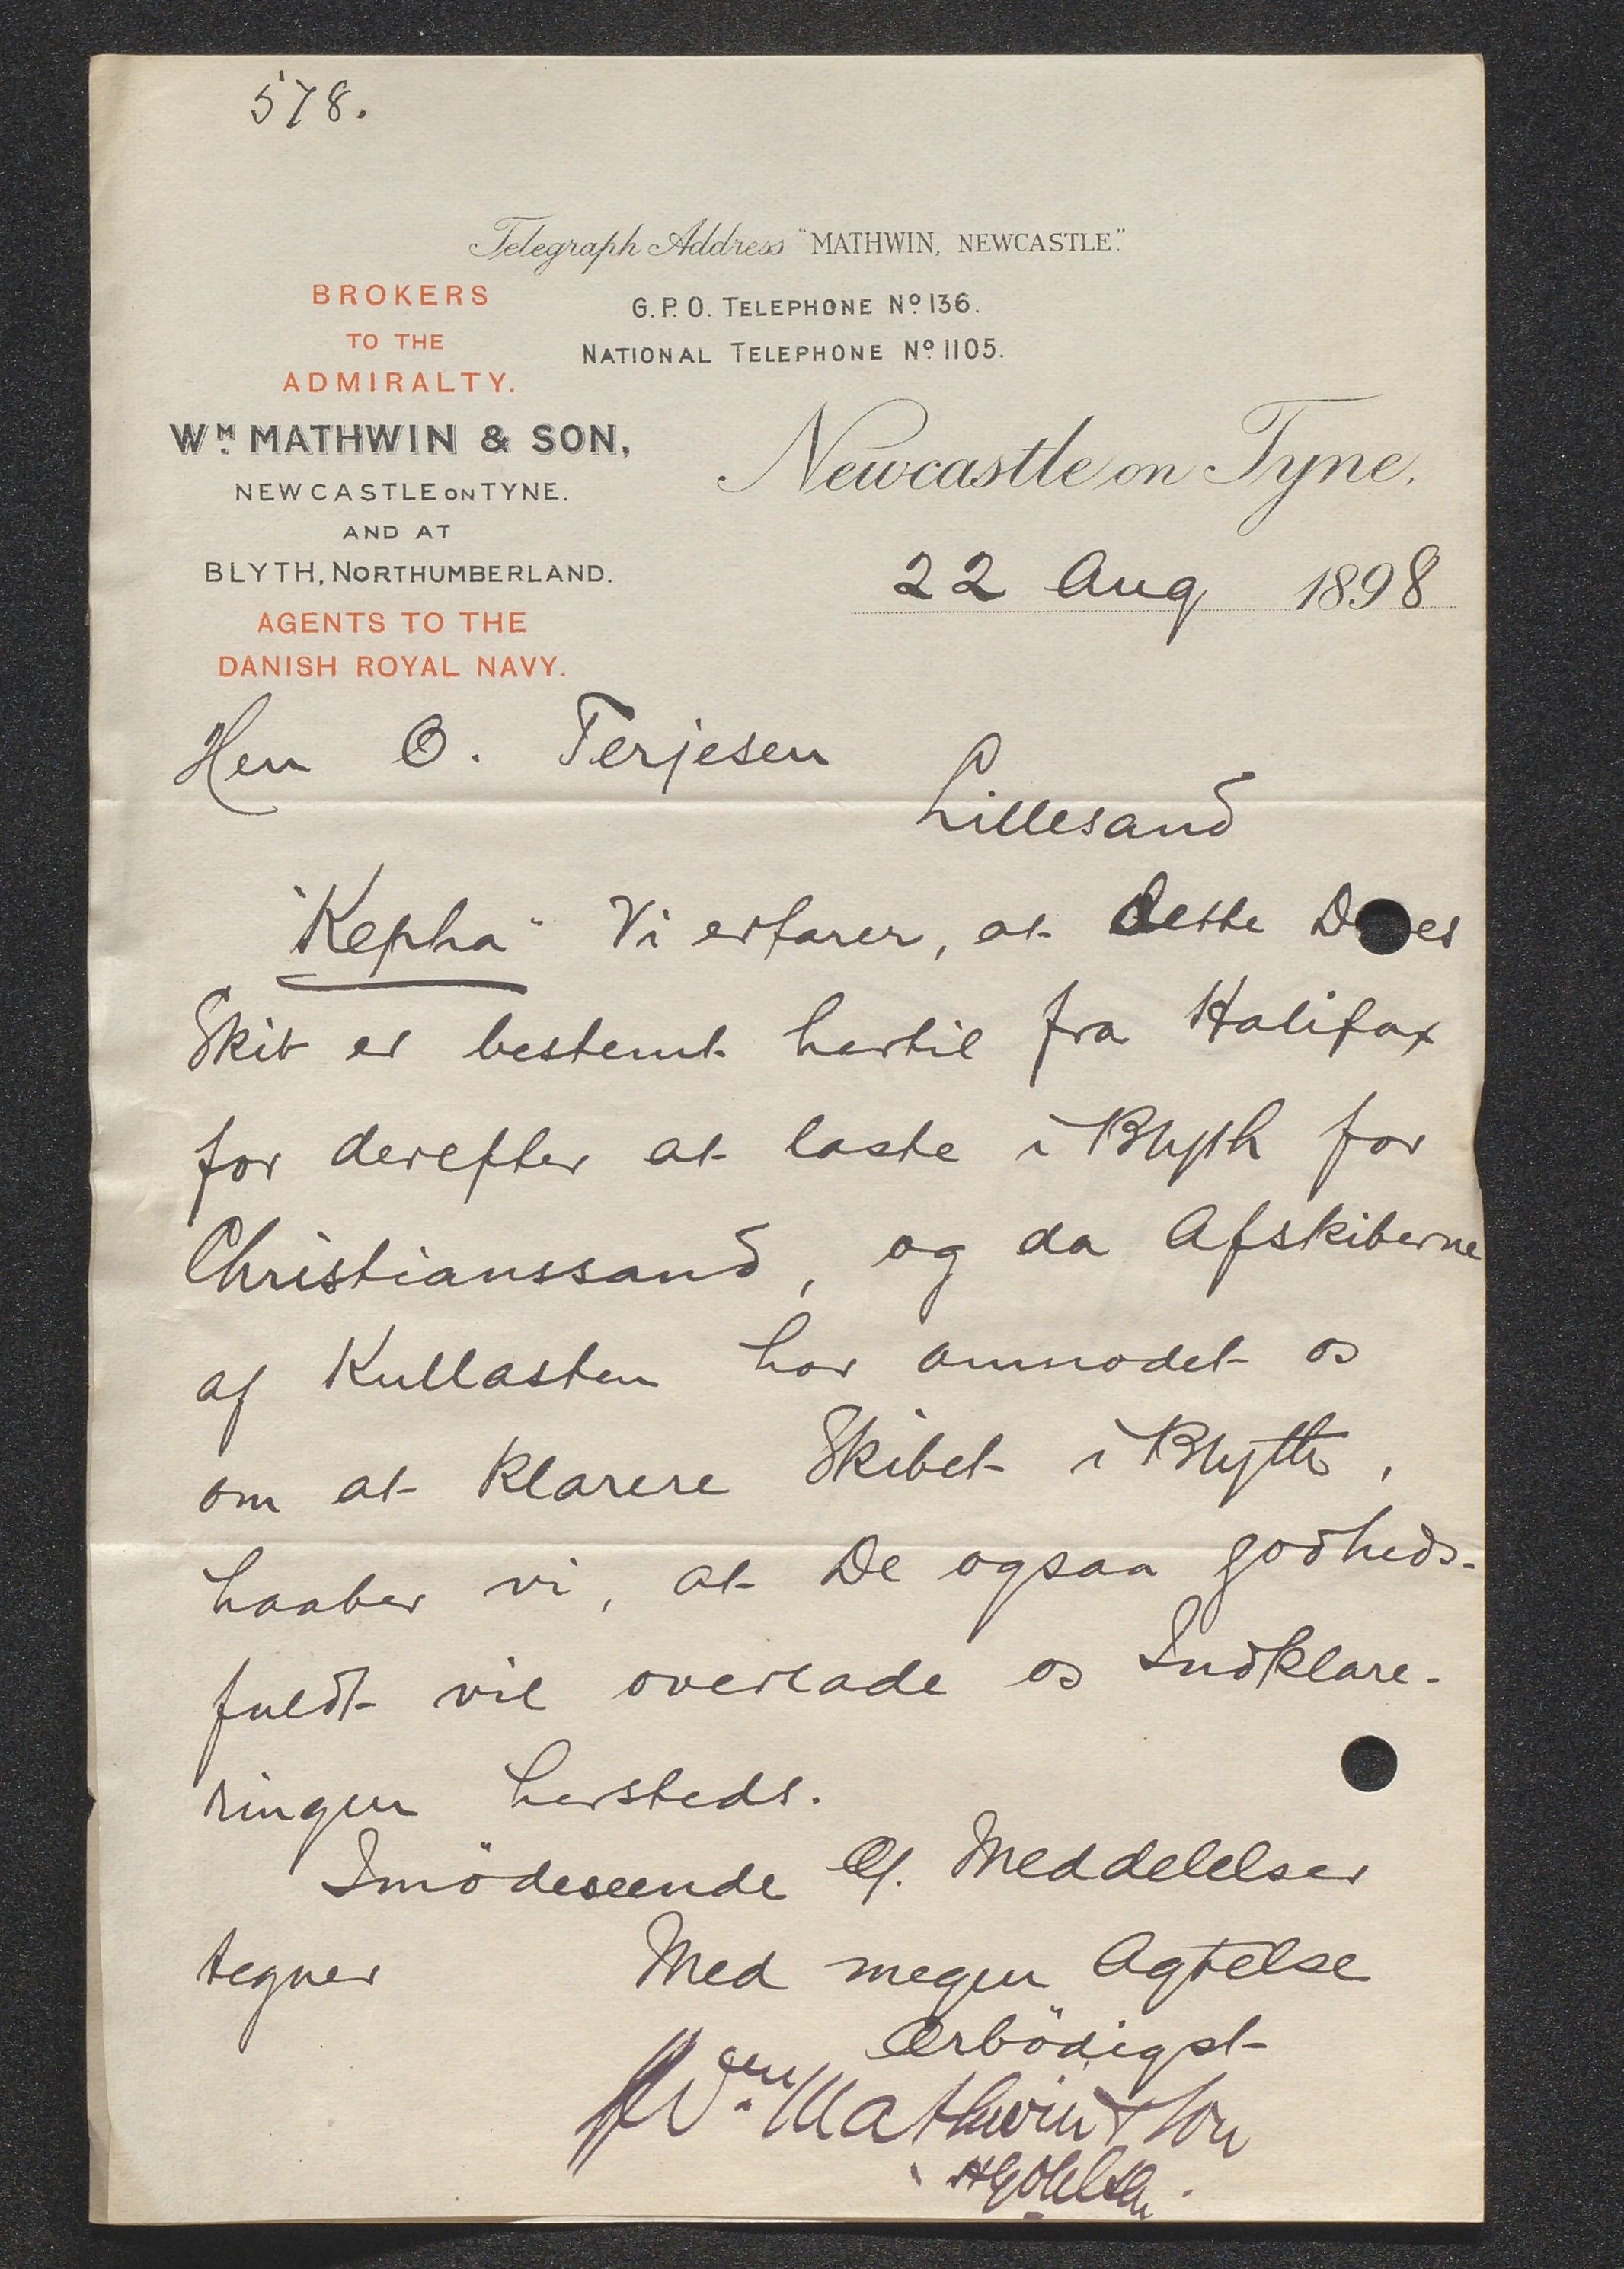 578.
Telegraph Address "MATHWIN, NEWCASTLE."
BROKERS
TO THE
ADMIRALTY.
G.P.O. TELEPHONE Nº 136.
NATIONAL TELEPHONE Nº 1105.
WM. MATHWIN & SON,
NEWCASTLE ON TYNE.
AND AT
BLYTH, NORTHUMBERLAND.
AGENTS TO THE
DANISH ROYAL NAVY.
Newcastle on Tyne,
22 Aug 1898
Herr O. Terjesen
Lillesand
"Kepha" Vi erfarer, at dette D es
Skib er bestemt hertil fra Halifax
for derefter at laste i Blyth for
Christianssand, og da Afskiberne
af Kullasten har anmodet os
om at klarere Skibet i Blyth,
haaber vi, at De ogsaa godheds-
fuldt vil overlade os Indklare-
ringen hersteds.
Imödeseende Meddelelser
tegner Med megen Agtelse
Ærbödigst
Wm. Mathwin & Son